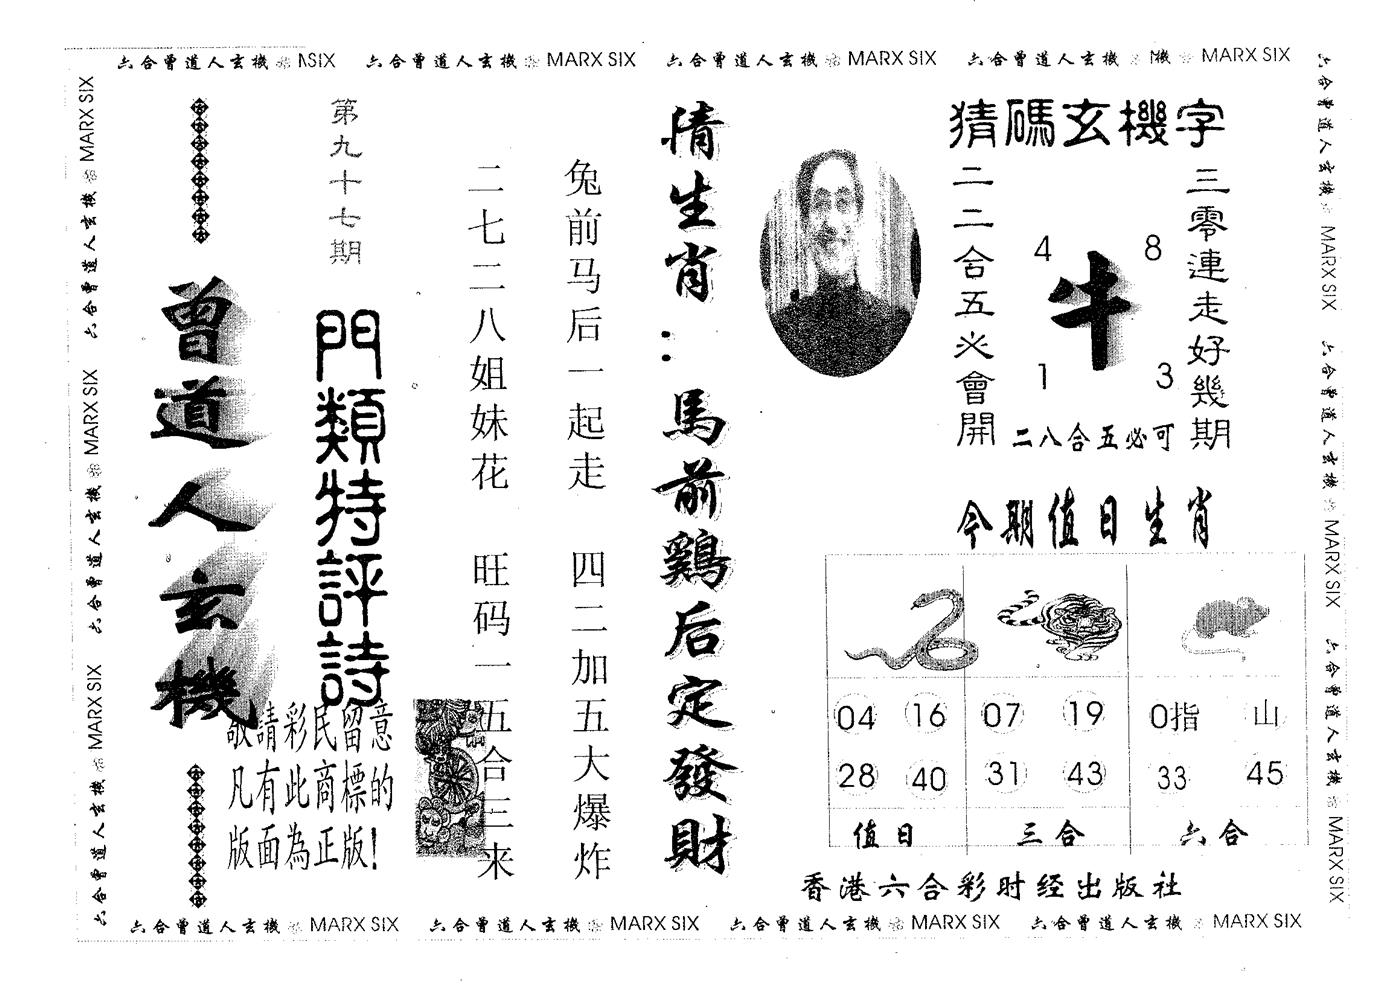 六合曾道人玄機 MARX SIX 六合曾道人玄機 MARX SIX 六合曾道人玄機 MARX SIX
六合曾道人玄機 MARX SIX 六合曾道人玄機 MARX SIX 六合曾道人玄機 MARX SIX
曾道人玄機
第九十七期
門類特評詩
敬請彩民留意
凡有此商標的
版面為正版!
兔前马后一起走 四二加五大爆炸
二七二八姐妹花 旺码一五合三来
猜生肖:馬前鷄后定發財
猜碼玄機字
三零連走好幾期
二二合五必會開
4 8
牛
1 3
二八合五必可
今期值日生肖
04 16 07 19 0指 山
28 40 31 43 33 45
值日 三合 六合
香港六合彩时经出版社
六合曾道人玄機 MARX SIX 六合曾道人玄機 MARX SIX 六合曾道人玄機 MARX SIX
六合曾道人玄機 MARX SIX 六合曾道人玄機 MARX SIX 六合曾道人玄機 MARX SIX 六合曾道人玄機 MARX SIX